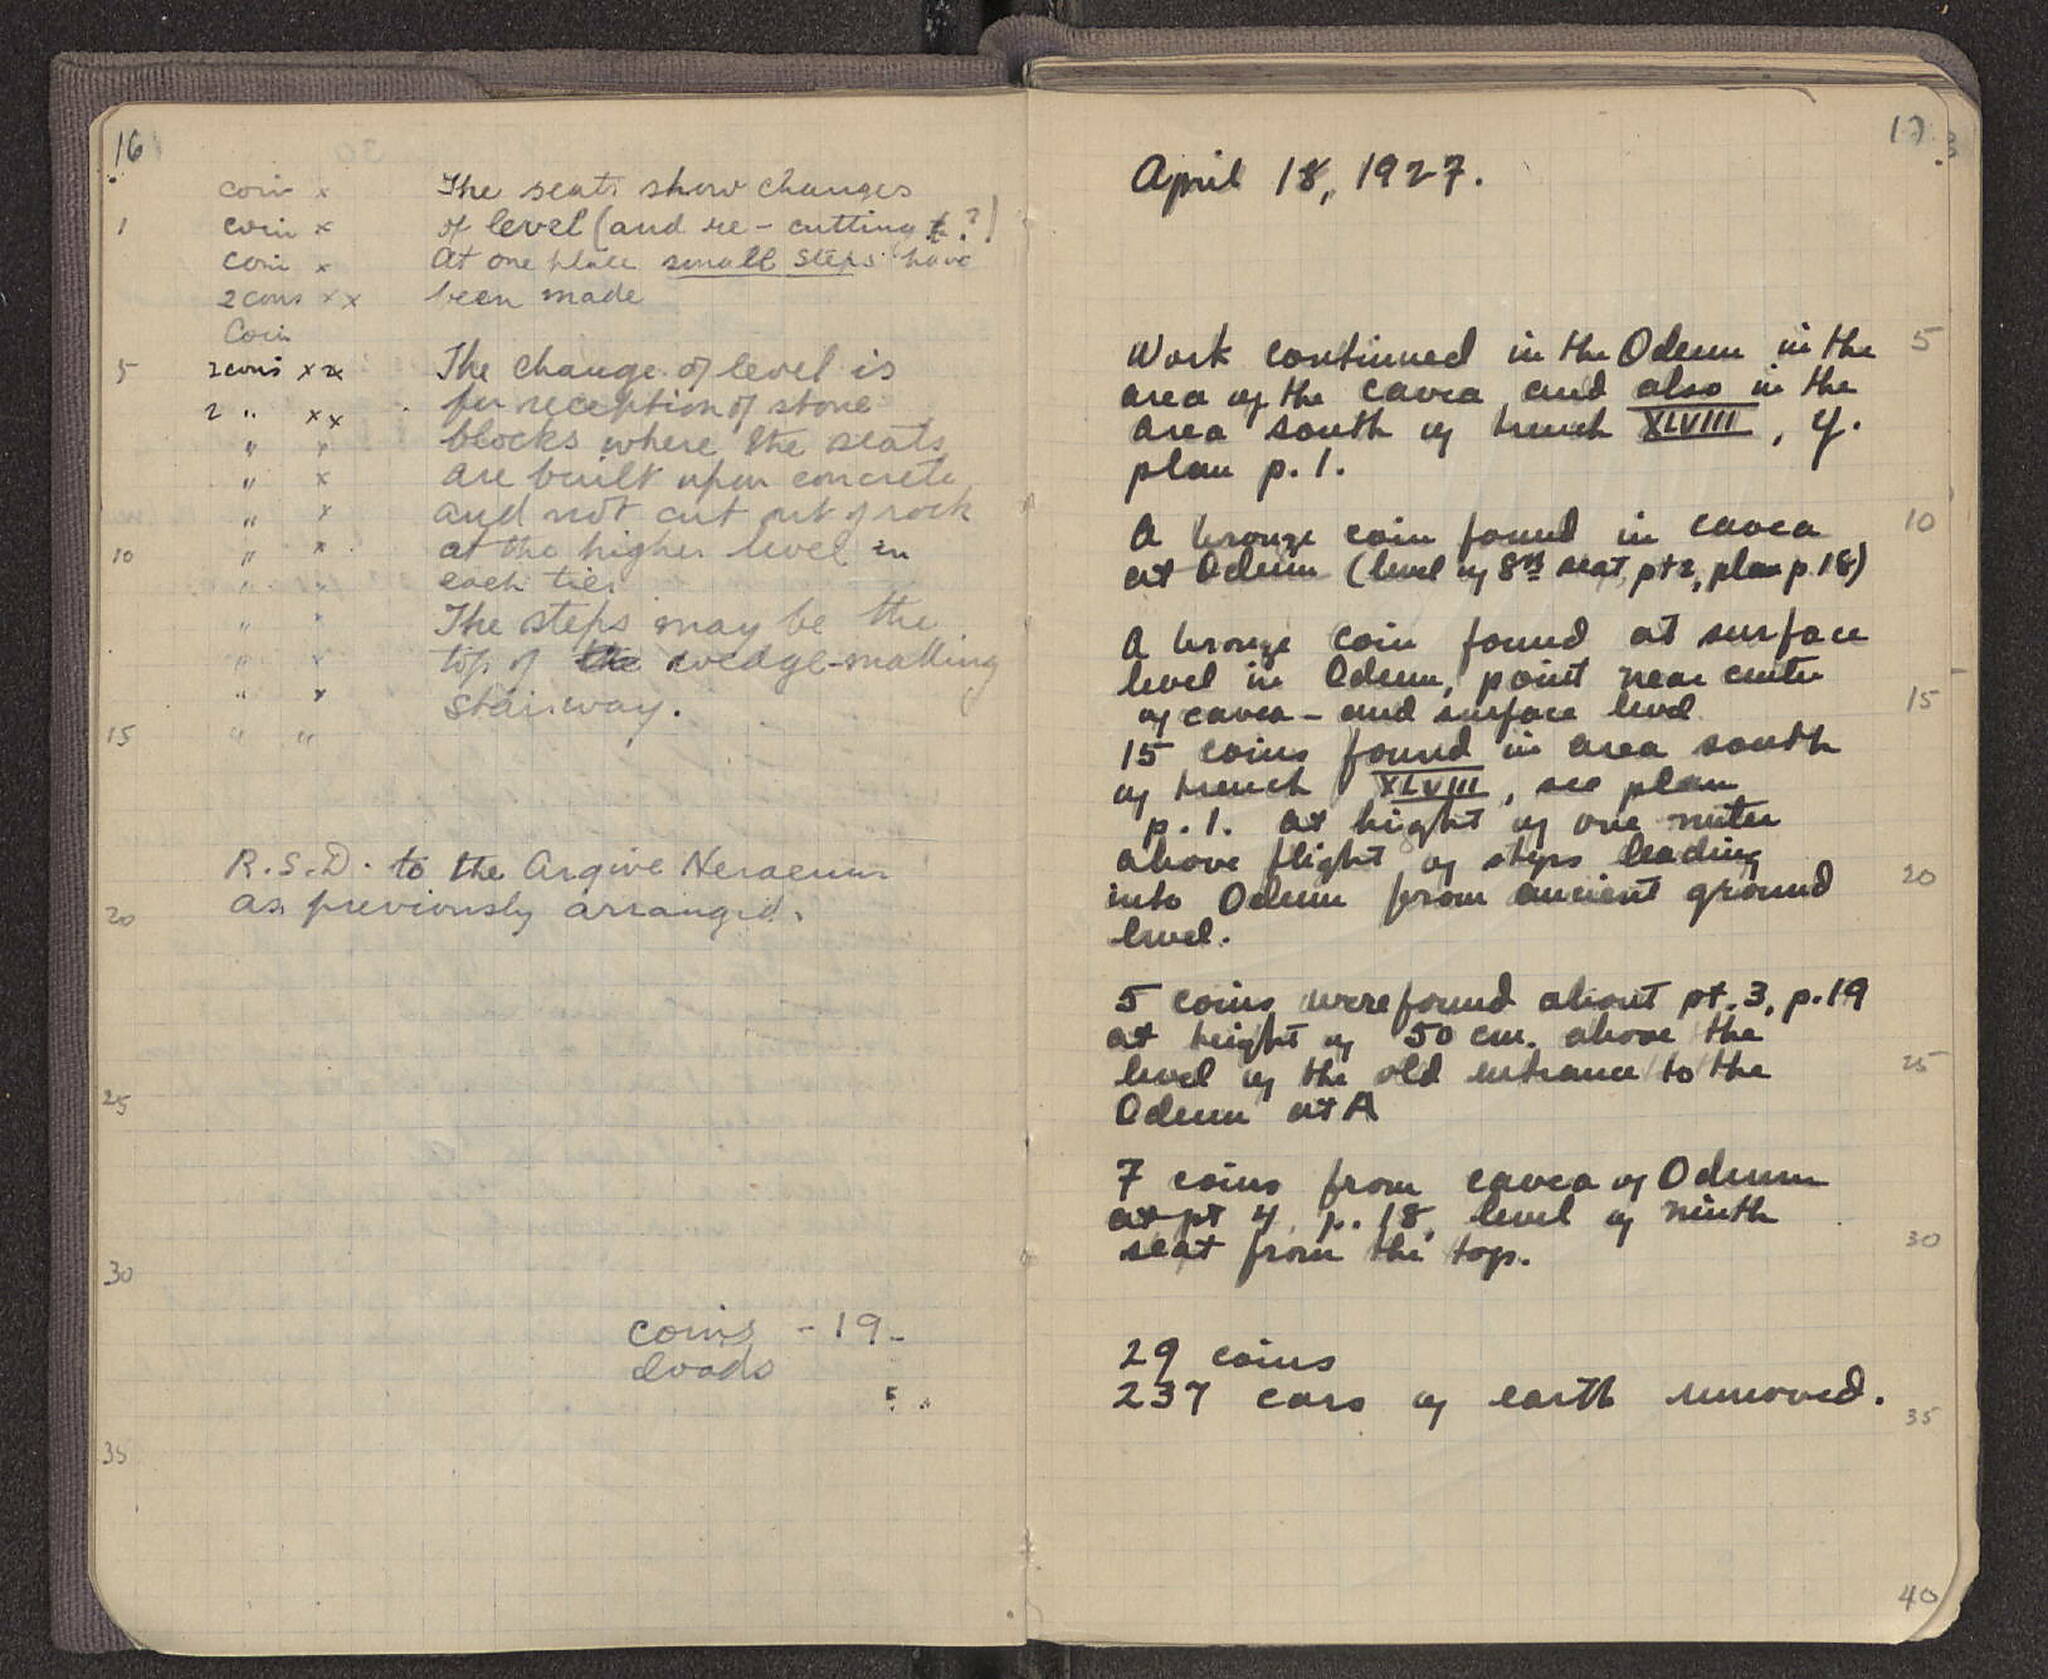 16
coin x The seats show changes
1 coin x of level (and re-cutting ?)
coin x At one place small steps have
2 coins x x been made
Coin
5 2 coins x x The change of level is
2 " x x for reception of stone
" x blocks where the seats
" x are built upon concrete
" x and not cut out of rock
10 " x at the higher level in
" x each tier
" x The steps may be the
" x top of the wedge-making
" x stairway.
15 " "
R.S.D. to the Argive Heraeum
20 as previously arranged.
25
30
coins - 19 -
loads
35
17
April 18, 1927.
Work continued in the Odeum in the 5
area of the cavea and also in the
area south of trench XLVIII, cf.
plan p. 1.
A bronze coin found in cavea 10
at Odeum (level of 8th seat, pt 2, plan p. 18)
A bronze coin found at surface
level in Odeum, point near center
of cavea - and surface level 15
15 coins found in area south
of trench XLVIII, see plan
p. 1. at hight of one meter
above flight of steps leading
into Odeum from ancient ground 20
level.
5 coins were found about pt. 3, p. 19
at height of 50 cm. above the
level of the old entrance to the 25
Odeum at A
7 coins from cavea of Odeum
at pt 4, p. 18, level of ninth
seat from the top. 30
29 coins
237 cars of earth removed.
35
40